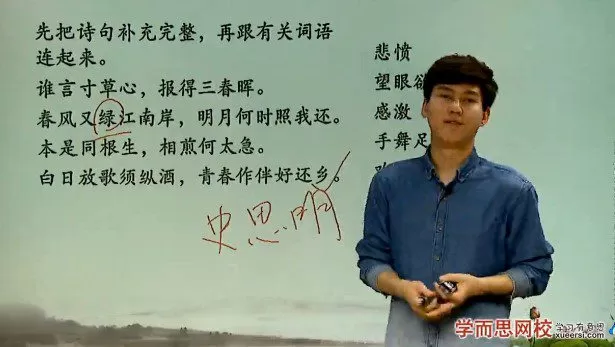 先把诗句补充完整，再跟有关词语
连起来。
谁言寸草心，报得三春晖。
春风又绿江南岸，明月何时照我还。
本是同根生，相煎何太急。
白日放歌须纵酒，青春作伴好还乡。
史思明
悲愤
望眼欲
感激
手舞足
学而思网校
学习有意思
xueersi.com